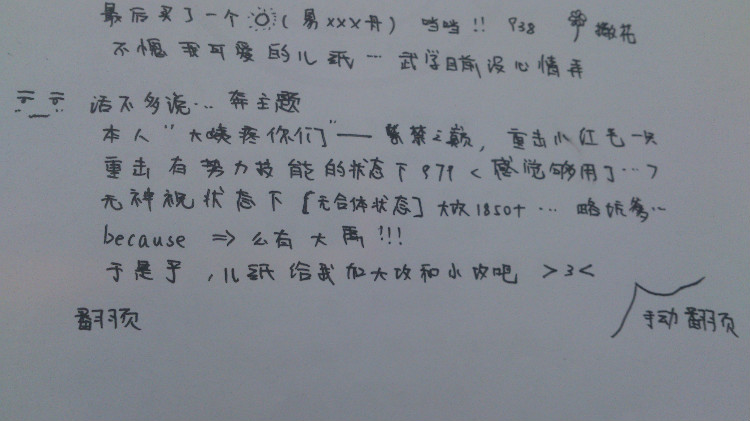 最后买了一个☼(易xxx丹) 当当!! 938 撒花
不愧我可爱的儿纸… 武学目前没心情弄
话不多说… 奔主题
本人"大姨疼你们"——紫禁之巅, 重击小红毛一只
重击有势力技能的状态下979<感觉够用了…>
无神祝状态下[无合体状态]大攻1850+… 略坑爹…
because ⇒ 么有大禹!!!
于是乎,儿纸给我加大攻和小攻吧 >3<
翻页
手动翻页